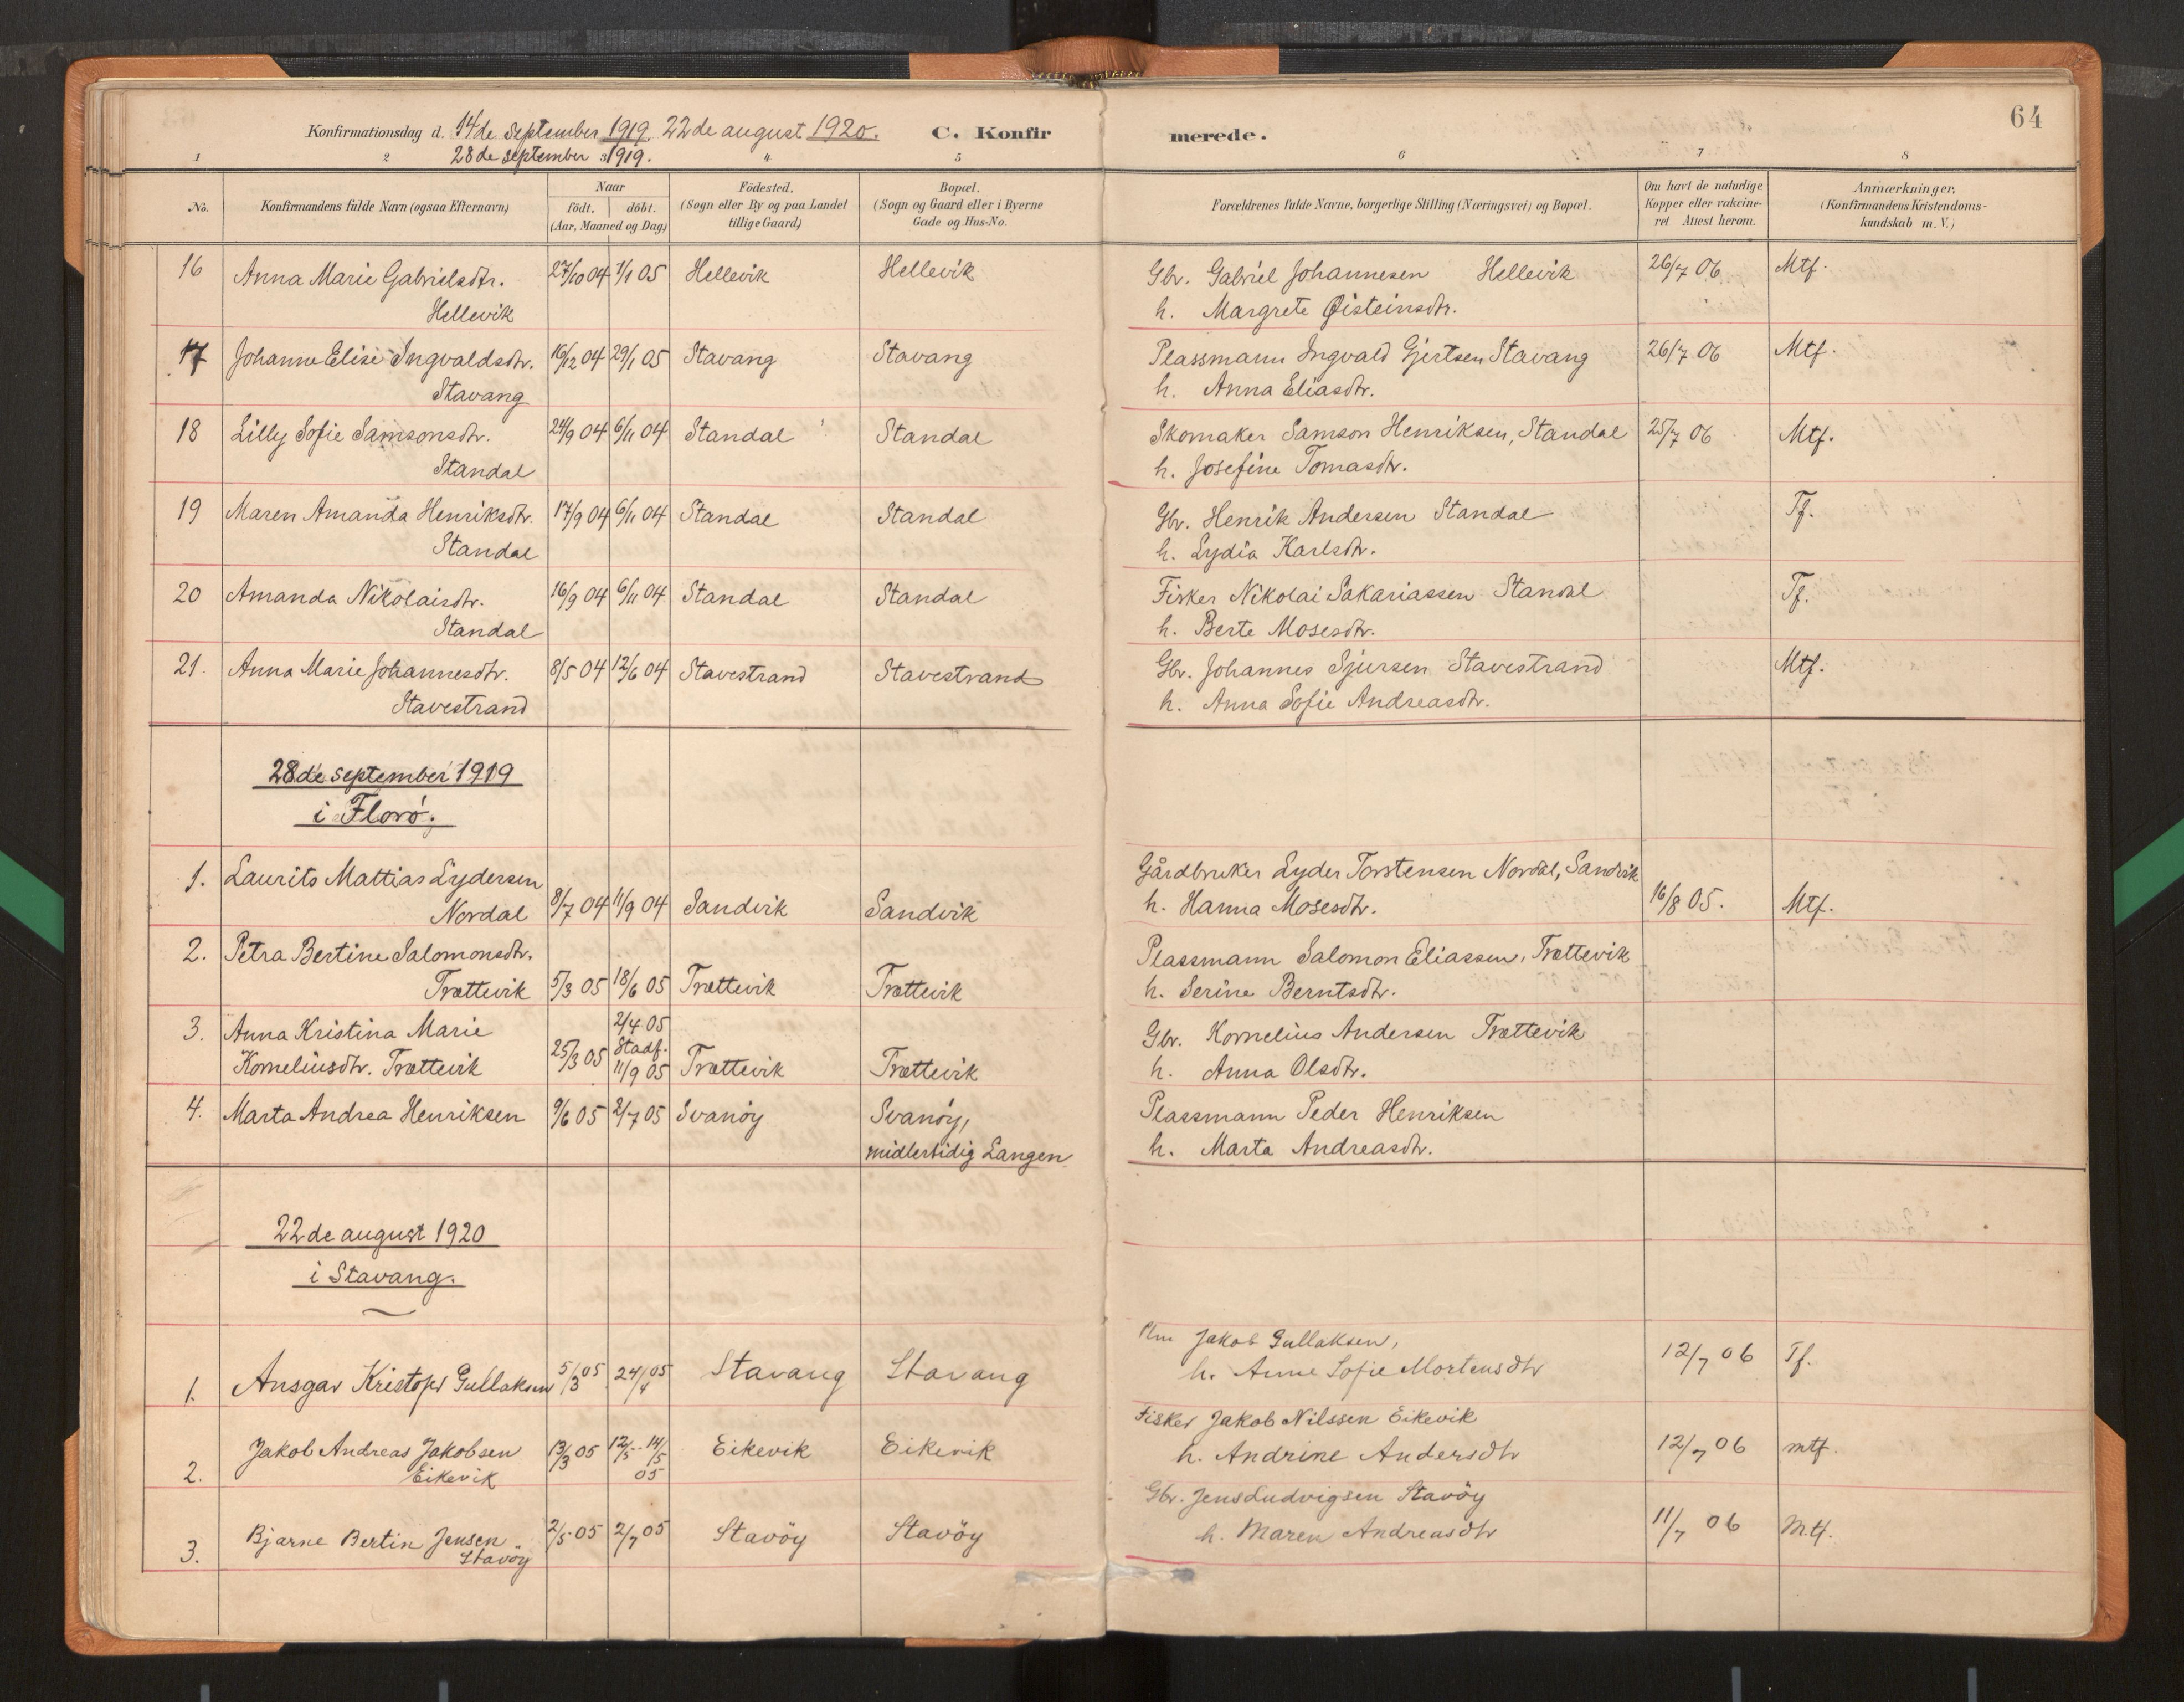 64
Konfirmationsdag d. 14de september 1919. 22de august 1920. C. Konfirmerede.
28de september 1919.
1 2 3 4 5 6 7 8
No.
Konfirmandens fulde Navn (ogsaa Efternavn)
Naar
födt. döbt.
(Aar, Maaned og Dag)
Födested.
(Sogn eller By og paa Landet
tillige Gaard)
Bopæl.
(Sogn og Gaard eller i Byerne
Gade og Hus-No.
Forældrenes fulde Navne, borgerlige Stilling (Næringsvei) og Bopæl.
Om havt de naturlige
Kopper eller vakcine-
ret Attest herom.
Anmærkninger.
(Konfirmandens Kristendoms-
kundskab m. V.)
16 Anna Marie Gabrielsdtr. 27/10 04 1/1 05 Hellevik Hellevik Gbr. Gabriel Johannesen Hellevik 26/7 06 Mtf.
Hellevik h. Margrete Øisteinsdtr.
17 Johanne Elise Ingvaldsdtr. 16/12 04 29/1 05 Stavang Stavang Plassmann Ingvald Gjertsen Stavang 26/7 06 Mtf.
Stavang h. Anna Eliasdtr.
18 Lilly Sofie Samsonsdtr. 24/9 04 6/11 04 Standal Standal Skomaker Samson Henriksen, Standal 25/7 06 Mtf.
Standal h. Josefine Tomasdtr.
19 Maren Amanda Henriksdtr. 17/9 04 6/11 04 Standal Standal Gbr. Henrik Andersen Standal Tf.
Standal h. Lydia Karlsdtr.
20 Amanda Nikolaisdtr. 16/9 04 6/11 04 Standal Standal Fisker Nikolai Sakariassen Standal Tf.
Standal h. Berte Mosesdtr.
21. Anna Marie Johannesdtr. 8/5 04 12/6 04 Stavestrand Stavestrand Gbr. Johannes Sjursen Stavestrand Mtf.
Stavestrand h. Anna Sofie Andreasdtr.
28de september 1919
i Florö.
1. Laurits Mattias Lydersen Gårdbruker Lyder Torstensen Nordal, Sandvik
Nordal 8/7 04 11/9 04 Sandvik Sandvik h. Hanna Mosesdtr. 16/8 05. Mtf.
2. Petra Bertine Salomonsdtr. Plassmann Salomon Eliassen, Trættevik
Trættevik 5/3 05 18/6 05 Trættevik Trættevik h. Serine Berntsdtr.
3. Anna Kristina Marie 2/4 05 Gbr. Kornelius Andersen Trættevik
Korneliusdtr. Trættevik 25/3 05 Stadf. 11/9 05 Trættevik Trættevik h. Anna Olsdtr.
4. Marta Andrea Henriksen 9/6 05 2/7 05 Svanöy Svanöy, Plassmann Peder Henriksen
midlertidig Langen h. Marta Andreasdtr.
22de august 1920
i Stavang.
Plm Jakob Gullaksen,
1. Ansgar Kristofer Gullaksen 5/3 05 24/4 05 Stavang Stavang h. Anne Sofie Mortensdtr 12/7 06 Tf.
Fisker Jakob Nilssen Eikevik
2. Jakob Andreas Jakobsen 13/3 05 12/5 - 14/5 05 Eikevik Eikevik h. Andrine Andersdtr 12/7 06 mtf.
Eikevik
Gbr. Jens Ludvigsen Stavöy
3. Bjarne Bertin Jensen 2/5 05 2/7 05 Stavöy Stavöy h. Maren Andreasdtr 11/7 06 Mtf.
Stavöy